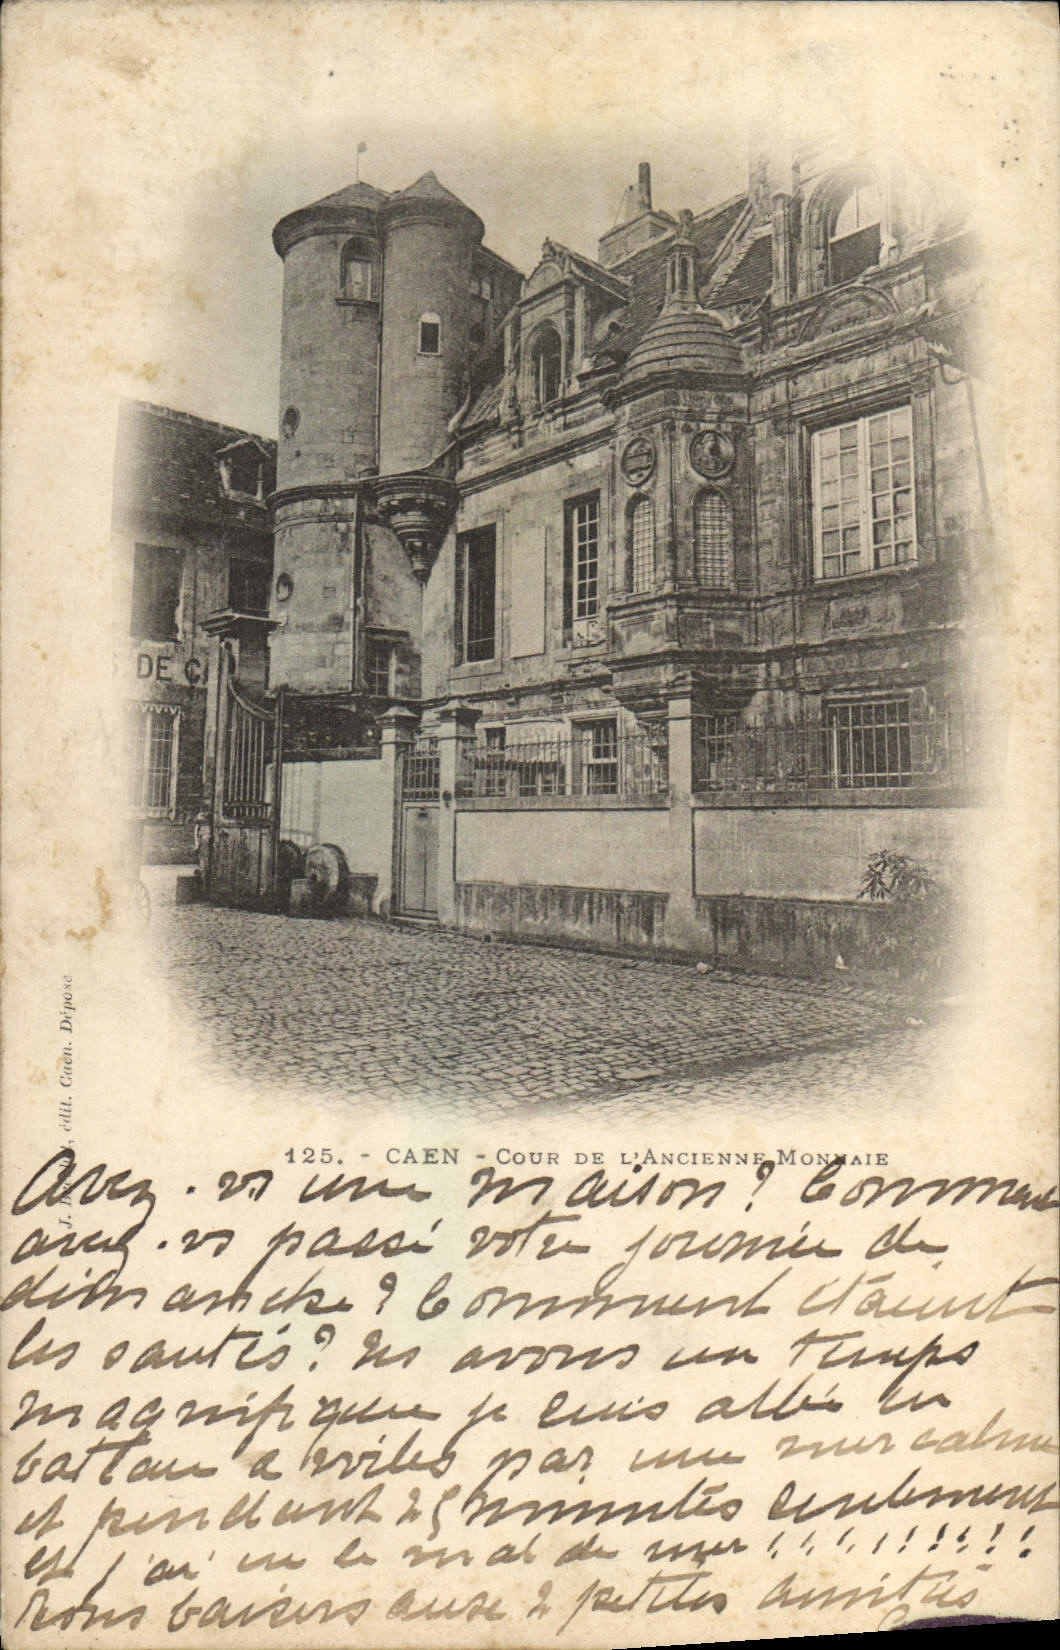 S DE C
125. - CAEN - COUR DE L'ANCIENNE MONNAIE
édit. Caen. Déposé
Avez-vs une maison? Comment
avez-vs passé votre journée de
dimanche? Comment étaient
les santés? Ns avons un temps
magnifique je suis allée en
bateau a voiles par une mer calme
et pendant 25 minutes seulement
et j'ai eu le mal de mer !!!!!!!!!!
bons baisers aux 2 petites amitiés